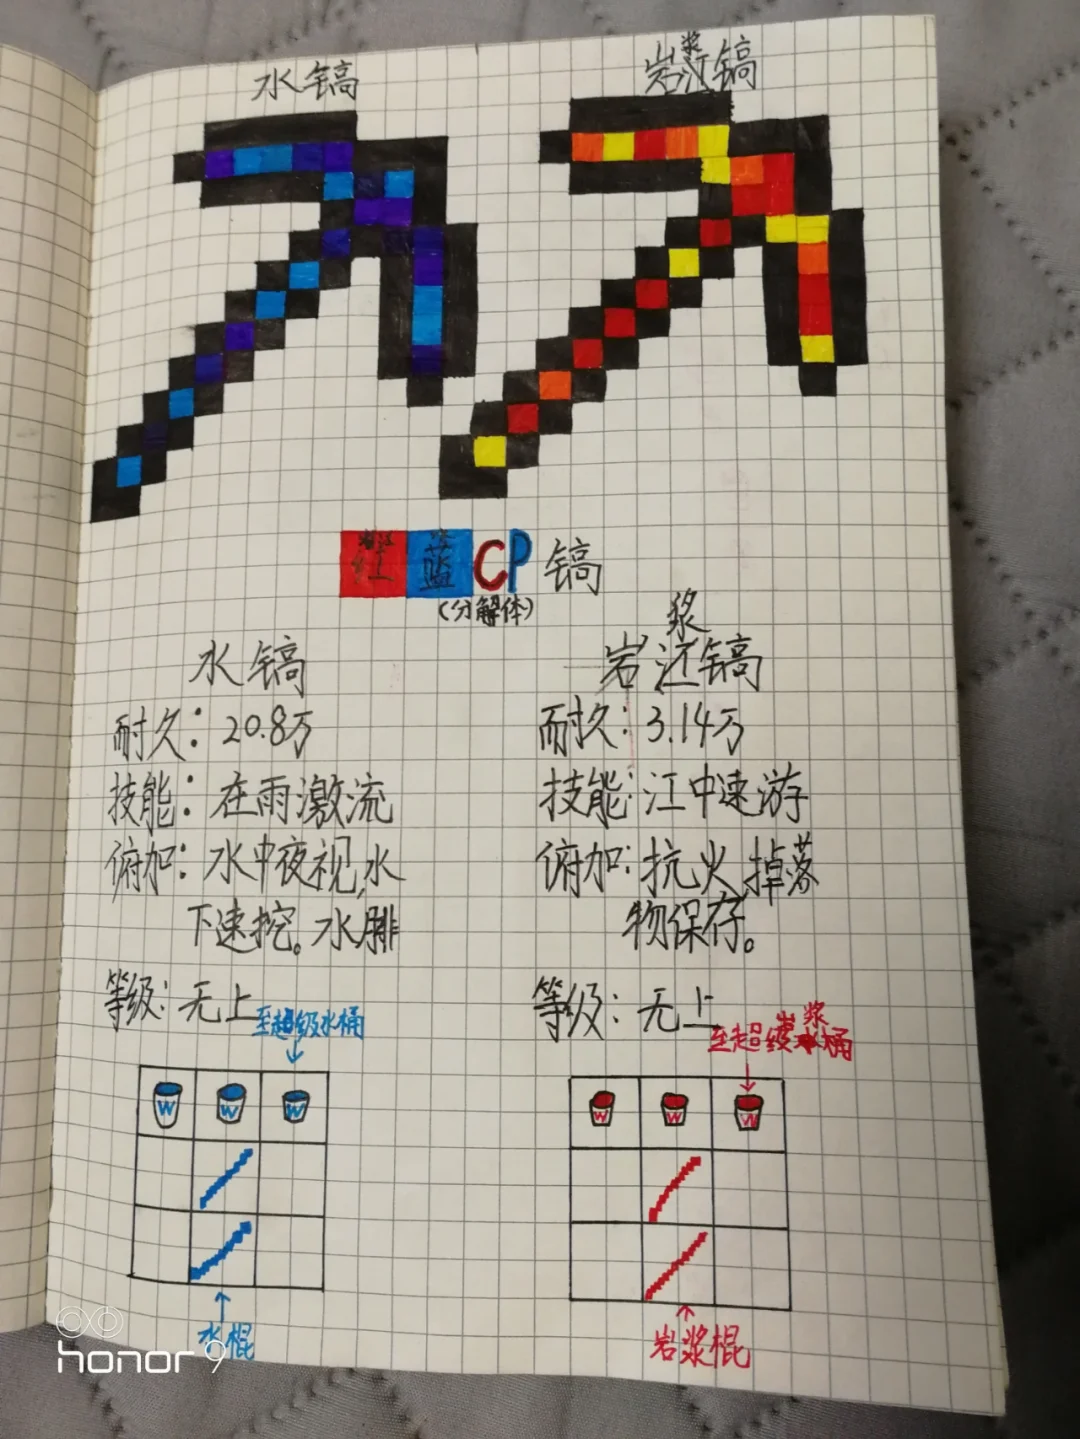 水镐
岩浆镐
红蓝CP镐
(分解体)
水镐
岩浆镐
耐久：20.8万
耐久：3.14万
技能：在雨激流
技能：江中速游
俯加：水中夜视,水
下速挖。水腓
俯加：抗火,掉落
物保存。
等级：无上
等级：无上
至超级水桶
至超级岩浆桶
W W W
W W W
水棍
岩浆棍
honor 9